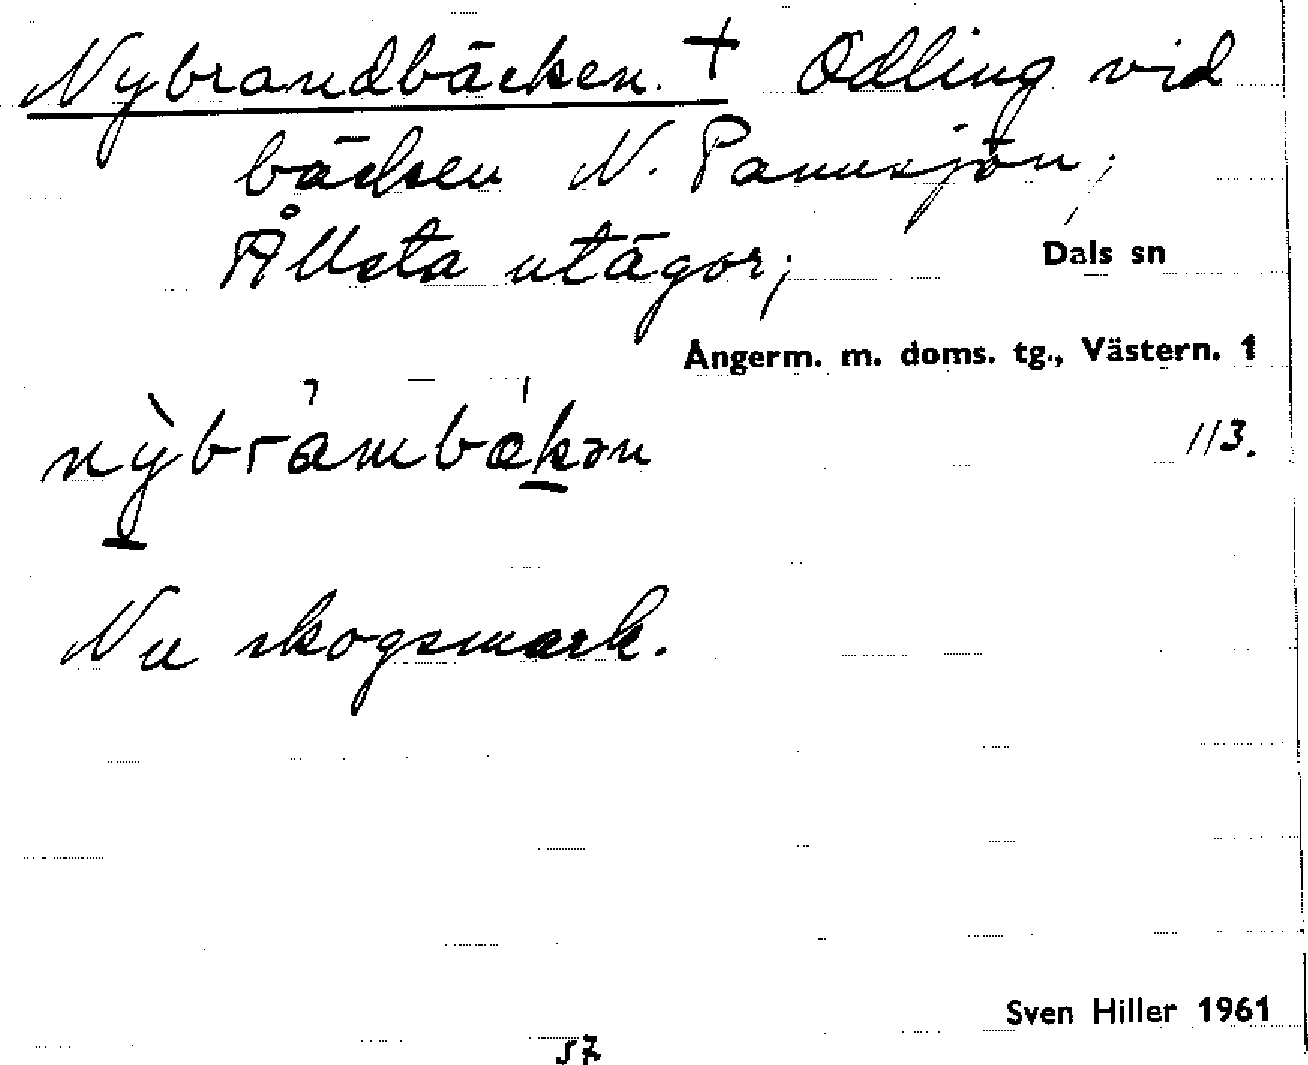 Nybrandbäcken. + Odling vid
bäcken N. Pannsjön;
Ållsta utägor; Dals sn
Ångerm. m. doms. tg., Västern. 1
nỳbràmbákən 113.
Nu skogsmark.
Sven Hiller 1961
57